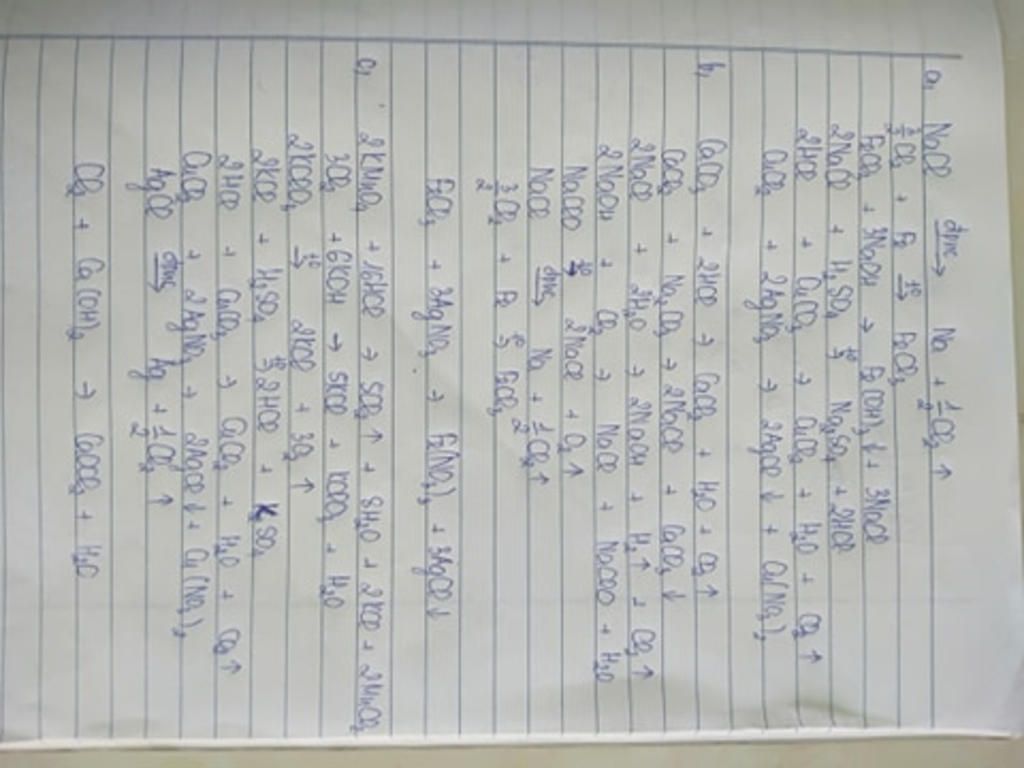 a, NaCl đpnc→ Na + 1/2 Cl₂ ↑
3/2 Cl₂ + Fe t°→ FeCl₃
FeCl₃ + 3NaOH → Fe(OH)₃ ↓ + 3NaCl
2NaCl + H₂SO₄ t°→ Na₂SO₄ + 2HCl
2HCl + CuCO₃ → CuCl₂ + H₂O + CO₂ ↑
CuCl₂ + 2AgNO₃ → 2AgCl ↓ + Cu(NO₃)₂
b, CaCO₃ + 2HCl → CaCl₂ + H₂O + CO₂ ↑
CaCl₂ + Na₂CO₃ → 2NaCl + CaCO₃ ↓
2NaCl + 2H₂O → 2NaOH + H₂ ↑ + Cl₂ ↑
2NaOH + Cl₂ → NaCl + NaClO + H₂O
NaClO t°→ 2NaCl + O₂ ↑
NaCl đpnc→ Na + 1/2 Cl₂ ↑
3/2 Cl₂ + Fe t°→ FeCl₃
FeCl₃ + 3AgNO₃ → Fe(NO₃)₃ + 3AgCl ↓
c, 2KMnO₄ + 16HCl → 5Cl₂ ↑ + 8H₂O + 2KCl + 2MnCl₂
3Cl₂ + 6KOH → 5KCl + KClO₃ + H₂O
2KClO₃ t°→ 2KCl + 3O₂ ↑
2KCl + H₂SO₄ t°→ 2HCl + K₂SO₄
2HCl + CuCO₃ → CuCl₂ + H₂O + CO₂ ↑
CuCl₂ + 2AgNO₃ → 2AgCl ↓ + Cu(NO₃)₂
AgCl đpnc→ Ag + 1/2 Cl₂ ↑
Cl₂ + Ca(OH)₂ → CaOCl₂ + H₂O